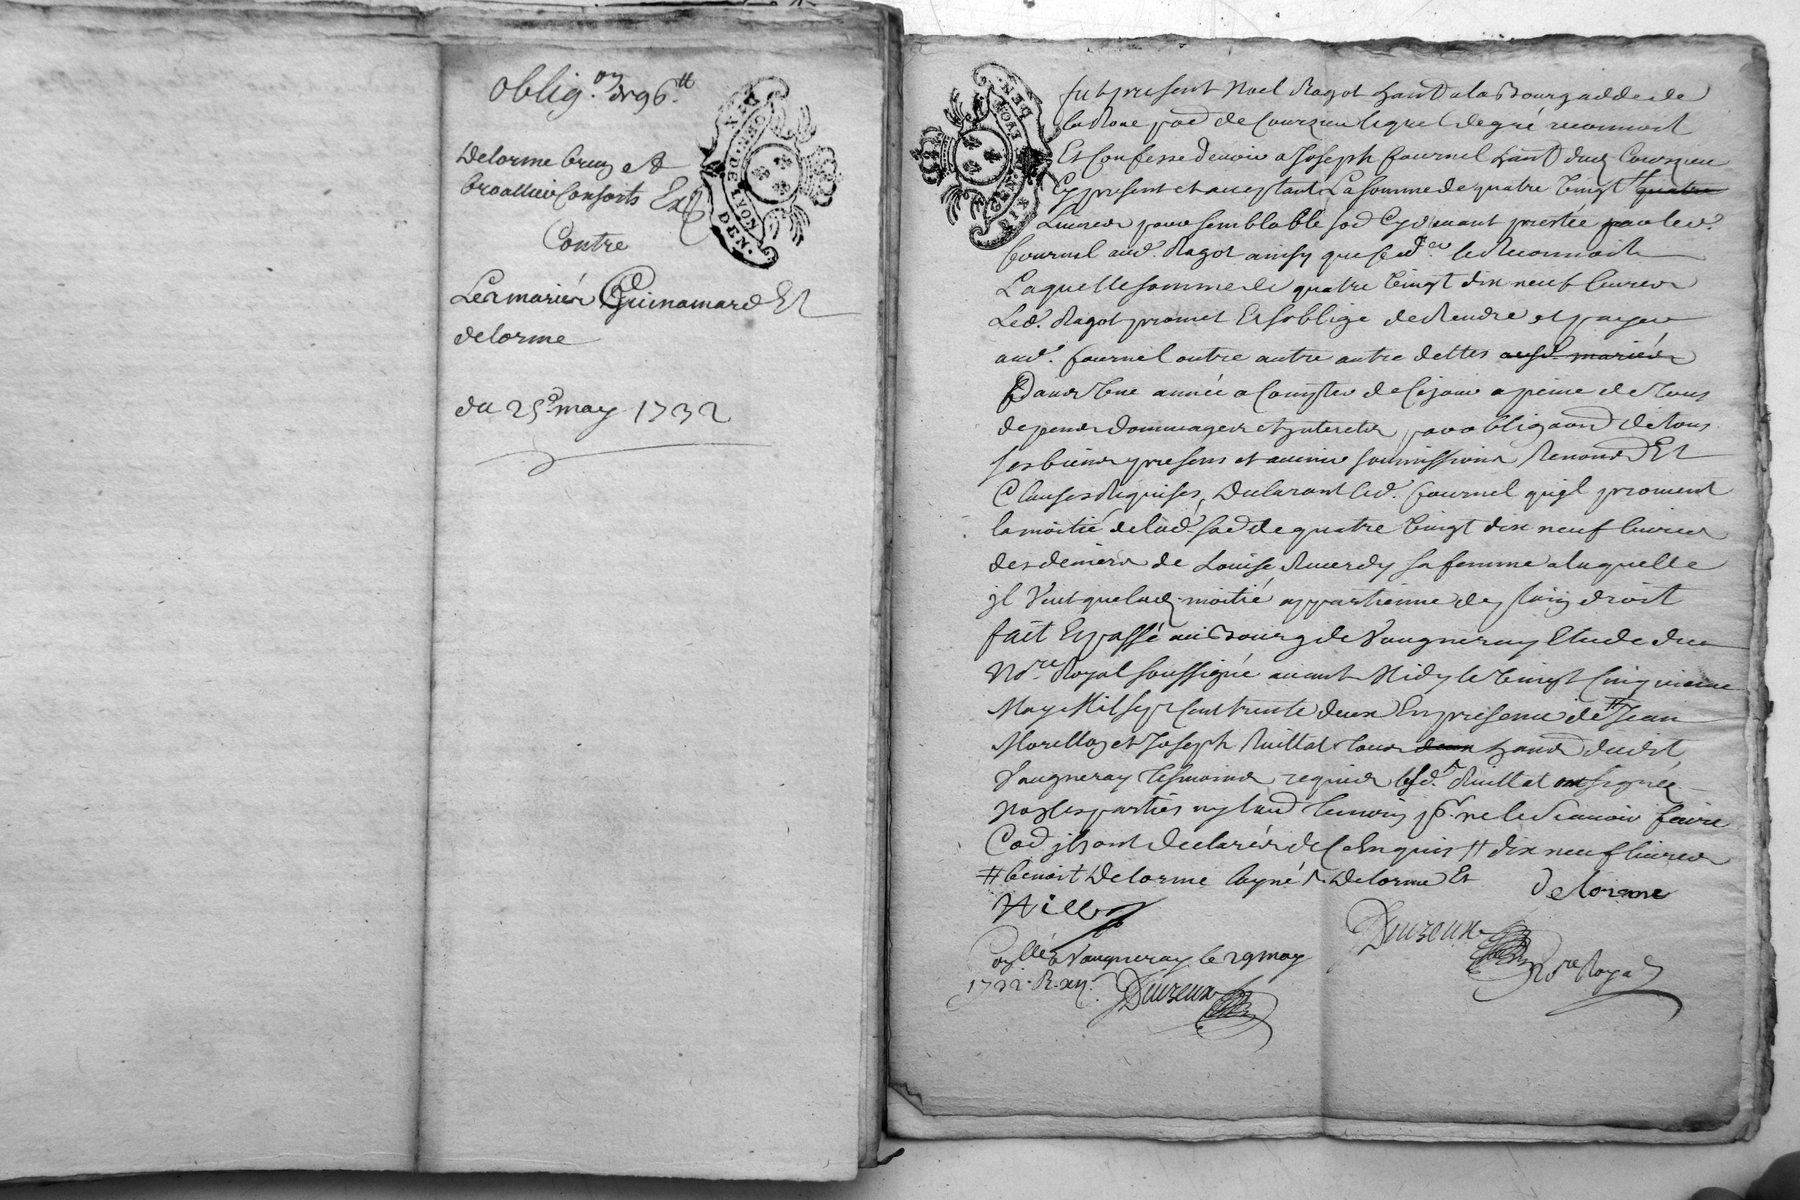 Oblig.on de 96 ₶
GEN. DE LYON
DIX DEN.
Delorme
Consorts
Contre
Les mariés Guinamard Et
delorme
du 25e may 1732
GEN. DE LYON
DIX DEN.
fut present Noel Ragot hant a la Bourgadde de
la Roue parr. de Courzieu lequel de gré reconnoit
Et Confesse devoir a Joseph fournel hant dud. Courzieu
Cy present et acceptant La somme de quatre vingt # quatre
Livres pour semblable so.e Cy devant prestée par led.
fournel aud. Ragot ainsy que led. le Reconnoit
Laquelle somme de quatre vingt dix neuf livres
Led. Ragot promet Et soblige de Rendre et payer
aud. fournel outre autre autre dettes ausd. mariés
Dans Une année a Compter de Ce jour a peine de tous
depens dommages et interets par obligaon de tous
ses biens presens et avenir soumissions Renons Et
Clauses Requises, Declarant led. fournel quil provient
la moitié de lad. so.e de quatre vingt dix neuf livres
des deniers de Louise sa femme a laquelle
jl Veut que lad. moitié appartienne de plain droit
fait Et passé au Bourg de Vaugneray Etude du
No.re Royal soussigné avant Midy le Vingt Cinquieme
May Mil sept Cent trente deux En presence de # Jean
Morellon et Joseph Ruillat tous deux hans dudit
Vaugneray tesmoins requis led. Ruillat signé
non les parties ny laud. temoin pr. ne le Scavoir faire
Co.e jls ont declarés de Ce Enquis # dix neuf livres
# benoit Delorme layné r. Delorme Et
delorme
Duzeux
No.re Royal
Collé a Vaugneray le 29 may
1732. R. xij s. Duzeux